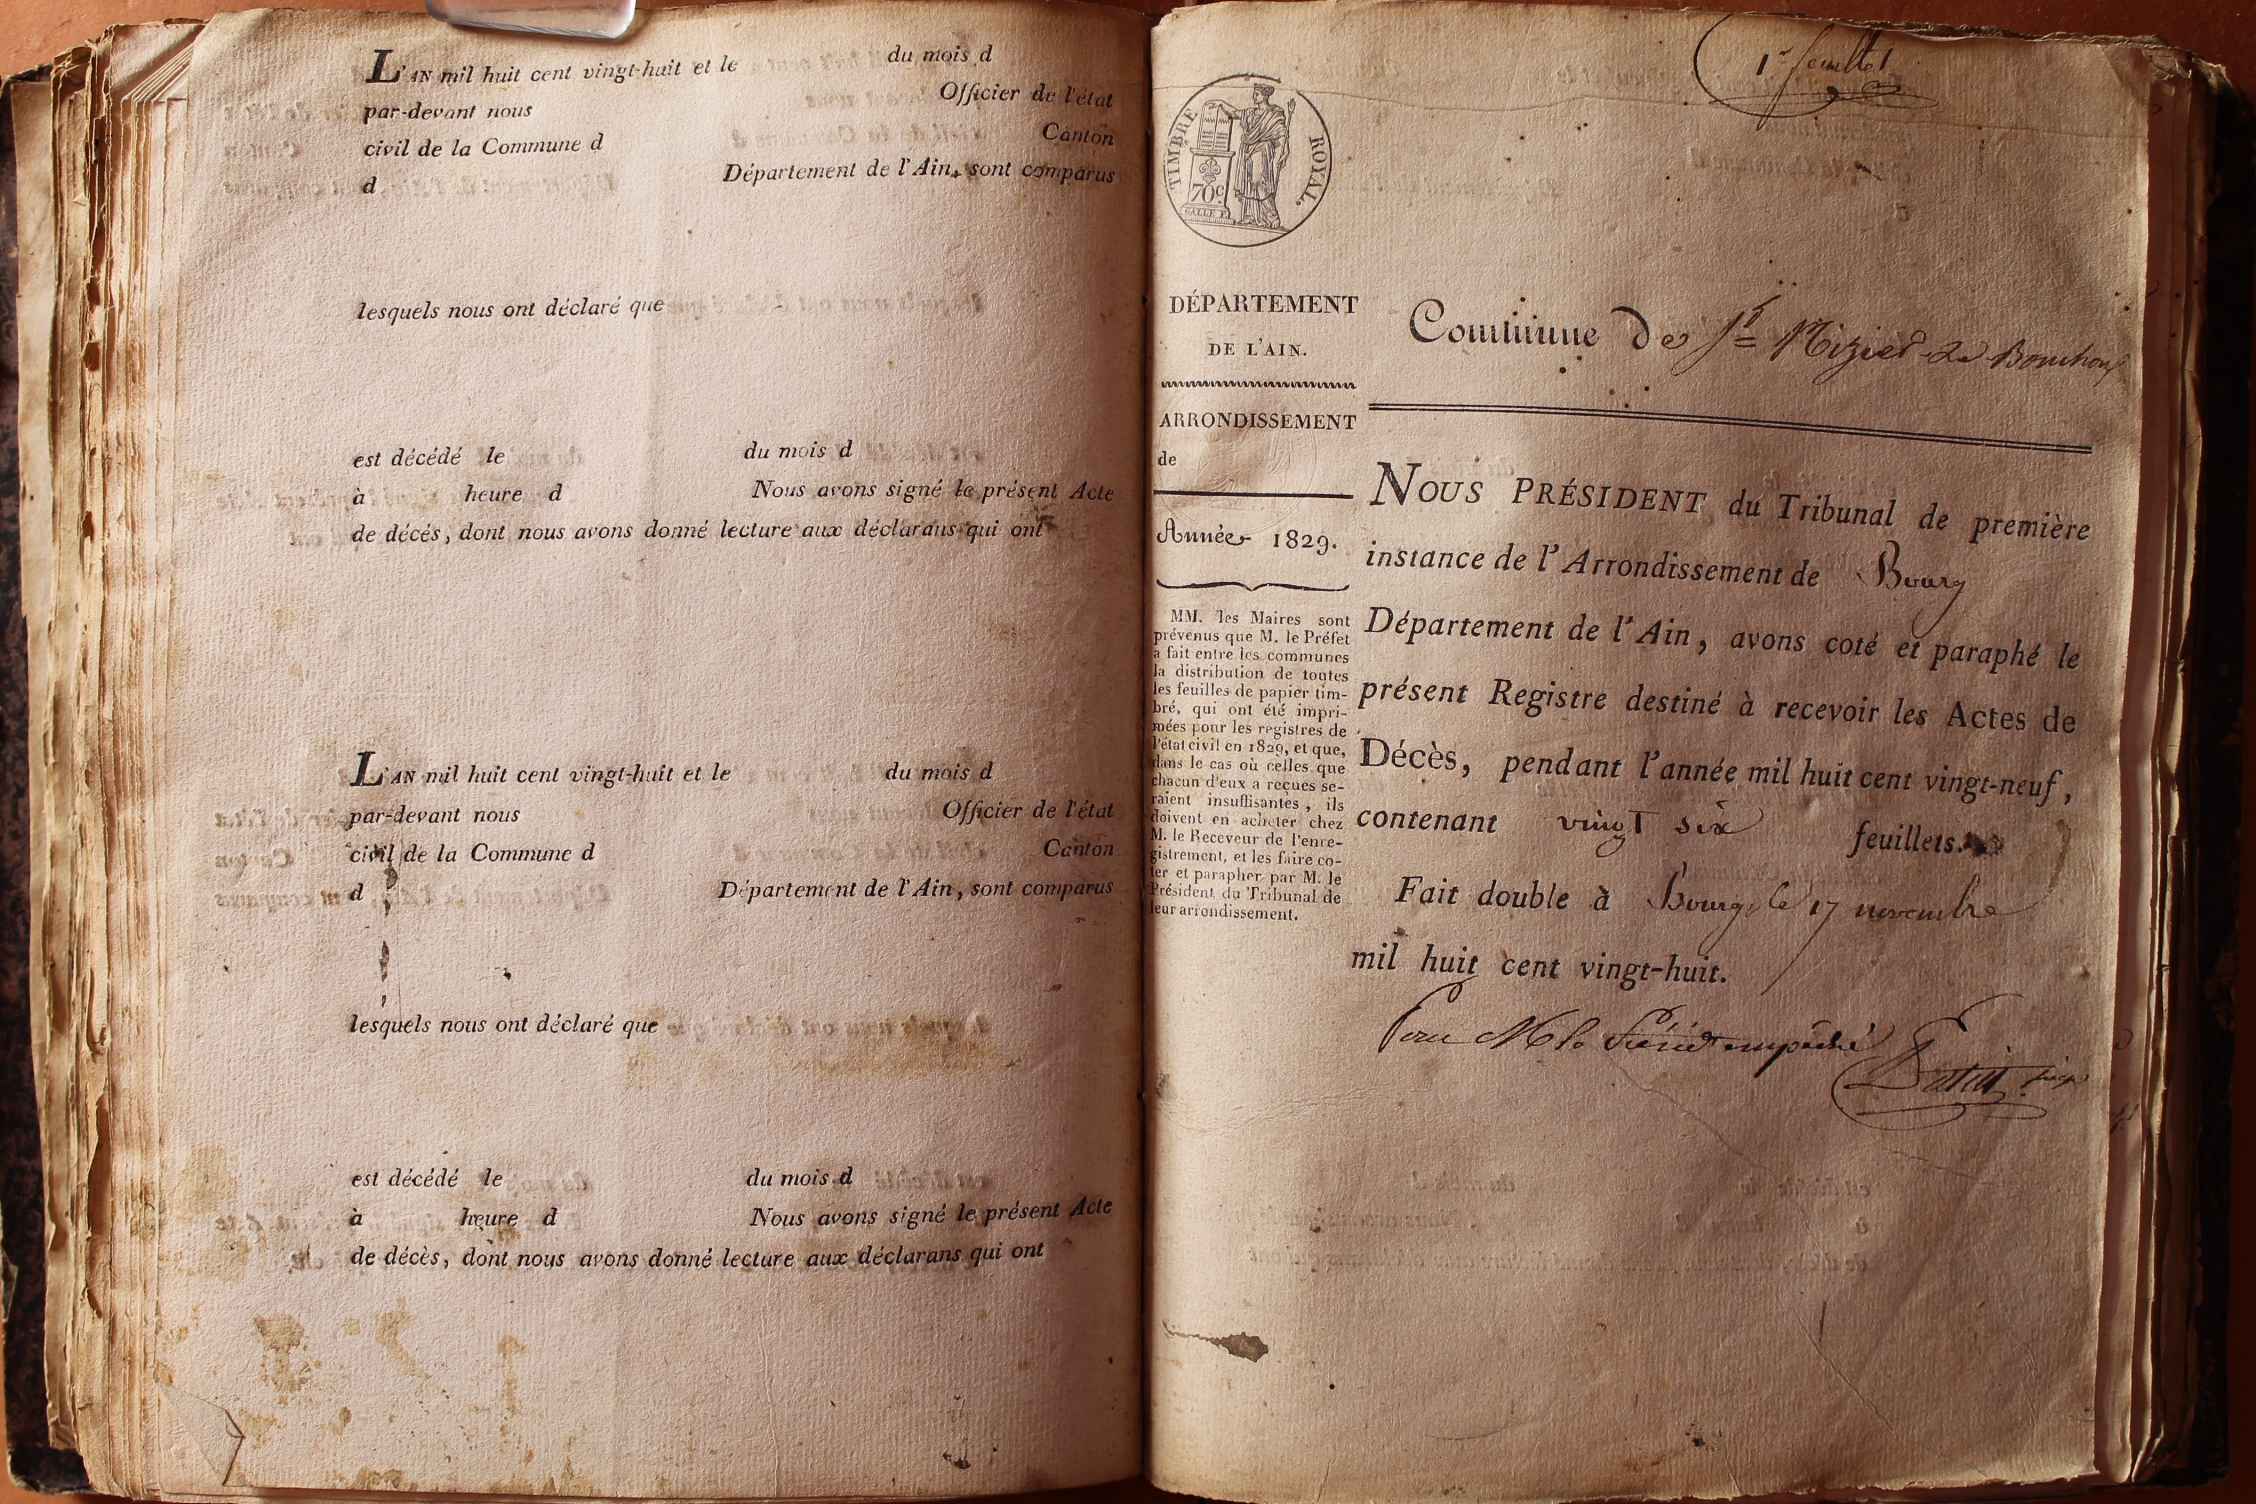 L'AN mil huit cent vingt-huit et le du mois d
par-devant nous Officier de l'état
civil de la Commune d Canton
d Département de l'Ain, sont comparus
lesquels nous ont déclaré que
est décédé le du mois d
à heure d Nous avons signé le présent Acte
de décés, dont nous avons donné lecture aux déclarans qui ont
L'AN mil huit cent vingt-huit et le du mois d
par-devant nous Officier de l'état
civil de la Commune d Canton
d Département de l'Ain, sont comparus
lesquels nous ont déclaré que
est décédé le du mois d
à heure d Nous avons signé le présent Acte
de décès, dont nous avons donné lecture aux déclarans qui ont
1r feuillet
TIMBRE ROYAL.
70c.
DÉPARTEMENT
DE L'AIN.
ARRONDISSEMENT
de
Année 1829.
MM. les Maires sont
prévenus que M. le Préfet
a fait entre les communes
la distribution de toutes
les feuilles de papier tim-
bré, qui ont été impri-
mées pour les registres de
l'état civil en 1829, et que,
dans le cas où celles que
chacun d'eux a reçues se-
raient insuffisantes, ils
doivent en acheter chez
M. le Receveur de l'enre-
gistrement, et les faire co-
ter et parapher par M. le
Président du Tribunal de
leur arrondissement.
Commune de St Nizier de Bouchoux
NOUS PRÉSIDENT du Tribunal de première
instance de l'Arrondissement de Bourg
Département de l'Ain, avons coté et paraphé le
présent Registre destiné à recevoir les Actes de
Décès, pendant l'année mil huit cent vingt-neuf,
contenant vingt six feuillets.
Fait double à Bourg, le 17 novembre
mil huit cent vingt-huit.
Pour M le Présid empêché
juge